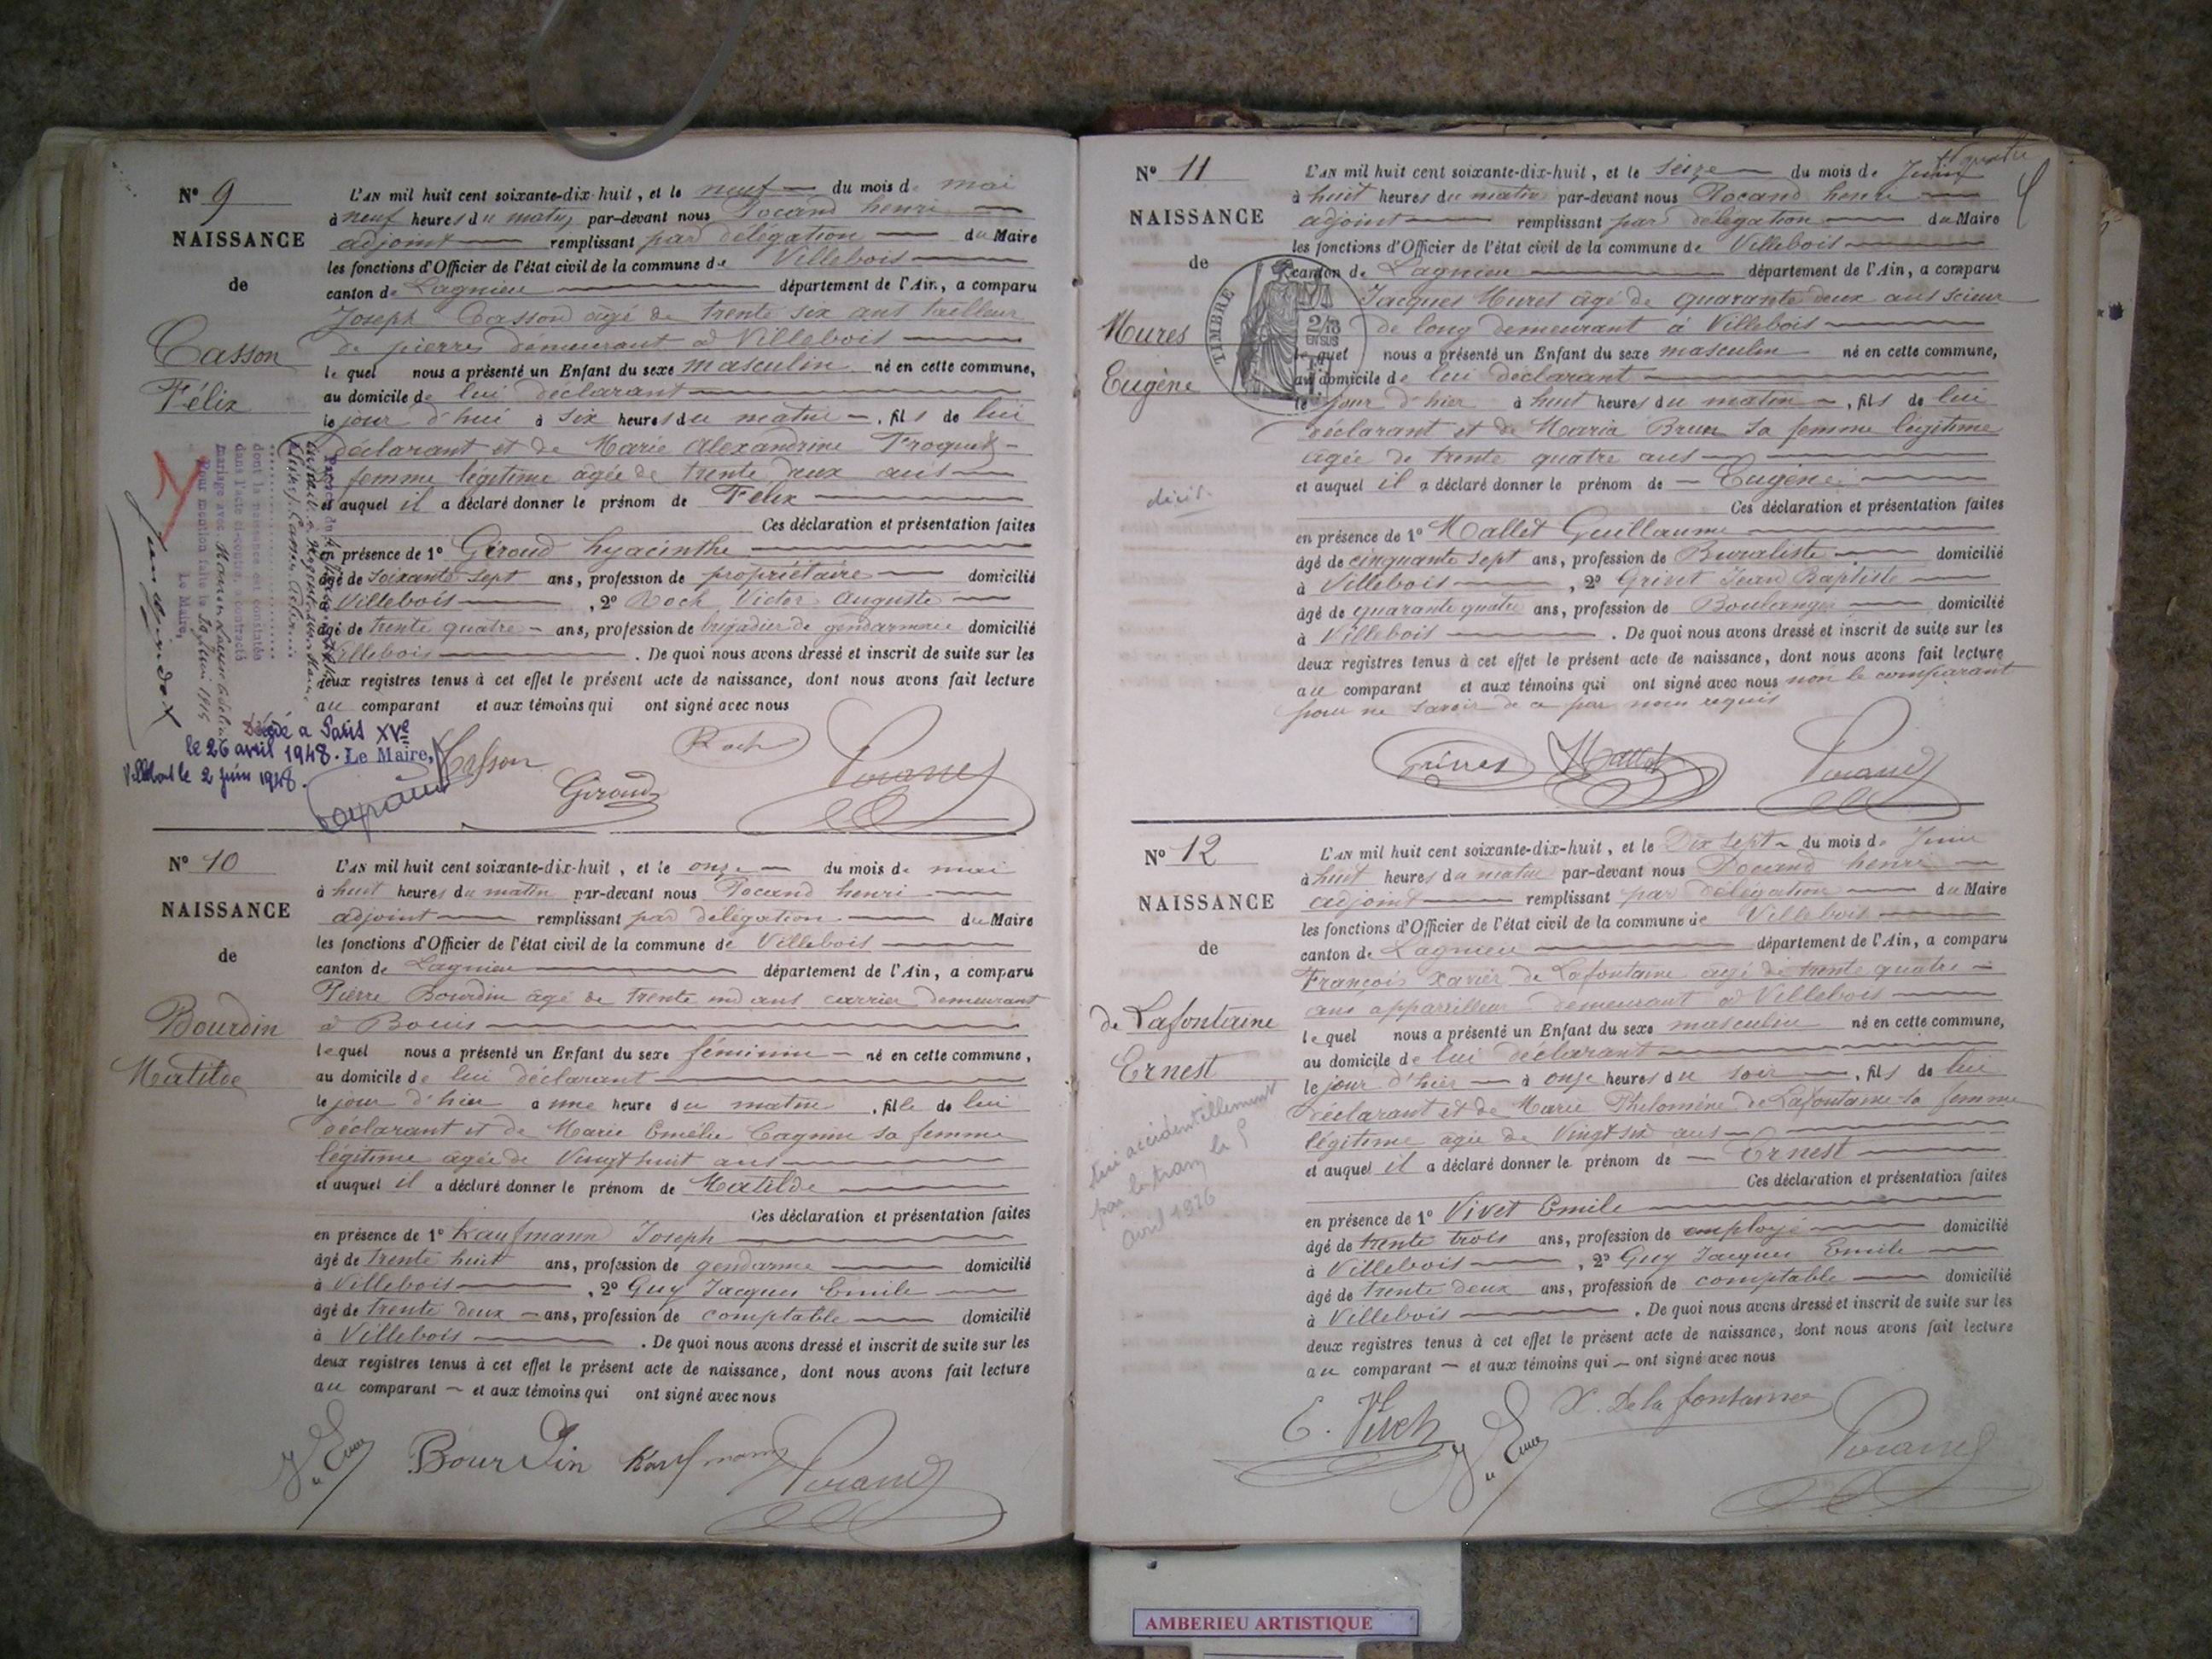 N° 9
NAISSANCE
de
Casson
Félix
L'AN mil huit cent soixante-dix-huit, et le neuf du mois de mai
à neuf heures du matin, par-devant nous Pocand henri
adjoint remplissant par délégation du Maire
les fonctions d'Officier de l'état civil de la commune de Villebois
canton de Lagnieu département de l'Ain, a comparu
Joseph Casson âgé de trente six ans tailleur
de pierres demeurant à Villebois
lequel nous a présenté un Enfant du sexe masculin né en cette commune,
au domicile de lui déclarant
le jour d'hui à six heures du matin, fils de lui
déclarant et de Marie Alexandrine
femme légitime âgée de trente deux ans
et auquel il a déclaré donner le prénom de Félix
Ces déclaration et présentation faites
en présence de 1° Giroud hyacinthe
âgé de soixante sept ans, profession de propriétaire domicilié
à Villebois, 2° Roch Victor Auguste
âgé de trente quatre ans, profession de brigadier de gendarmerie domicilié
Villebois. De quoi nous avons dressé et inscrit de suite sur les
deux registres tenus à cet effet le présent acte de naissance, dont nous avons fait lecture
au comparant et aux témoins qui ont signé avec nous
dont la naissance est constatée
dans l'acte ci-contre, a contracté
mariage avec
Pour mention faite le
Le Maire,
Décédé à Paris XVe
le 26 avril 1948. Le Maire,
Villebois le 2 juin 1948.
Casson
Roch
Giroud
Pocand
N° 10
NAISSANCE
de
Bourdin
Matilde
L'AN mil huit cent soixante-dix-huit, et le onze du mois de mai
à huit heures du matin par-devant nous Pocand henri
adjoint remplissant par délégation du Maire
les fonctions d'Officier de l'état civil de la commune de Villebois
canton de Lagnieu département de l'Ain, a comparu
Pierre Bourdin âgé de trente ans carrier demeurant
à Bouis
lequel nous a présenté un Enfant du sexe féminin né en cette commune,
au domicile de lui déclarant
le jour d'hier à une heure du matin, fille de lui
déclarant et de Marie Emélie Cagnin sa femme
légitime âgée de Vingt huit ans
et auquel il a déclaré donner le prénom de Matilde
Ces déclaration et présentation faites
en présence de 1° Kaufmann Joseph
âgé de trente huit ans, profession de gendarme domicilié
à Villebois, 2° Guy Jacques Emile
âgé de trente deux ans, profession de comptable domicilié
à Villebois. De quoi nous avons dressé et inscrit de suite sur les
deux registres tenus à cet effet le présent acte de naissance, dont nous avons fait lecture
au comparant et aux témoins qui ont signé avec nous
Bourdin Kaufmann Pocand
N° 11
NAISSANCE
de
Mures
Eugène
TIMBRE
2/10
EN SUS
L'AN mil huit cent soixante-dix-huit, et le seize du mois de Juin
à huit heures du matin par-devant nous Pocand henri
adjoint remplissant par délégation du Maire
les fonctions d'Officier de l'état civil de la commune de Villebois
canton de Lagnieu département de l'Ain, a comparu
Jacques Mures âgé de quarante deux ans scieur
de long demeurant à Villebois
lequel nous a présenté un Enfant du sexe masculin né en cette commune,
au domicile de lui déclarant
le jour d'hier à huit heures du matin, fils de lui
déclarant et de Maria Brun sa femme légitime
âgée de trente quatre ans
et auquel il a déclaré donner le prénom de Eugène
Ces déclaration et présentation faites
en présence de 1° Mallet Guillaume
âgé de cinquante sept ans, profession de Buraliste domicilié
à Villebois, 2° Grivet Jean Baptiste
âgé de quarante quatre ans, profession de Boulanger domicilié
à Villebois. De quoi nous avons dressé et inscrit de suite sur les
deux registres tenus à cet effet le présent acte de naissance, dont nous avons fait lecture
au comparant et aux témoins qui ont signé avec nous non le comparant
pour ne savoir de ce par nous requis
Mallet Pocand
N° 12
NAISSANCE
de
de Lafontaine
Ernest
tué accidentellement
par le tram le 9
avril 1926
L'AN mil huit cent soixante-dix-huit, et le Dix sept du mois de Juin
à huit heures du matin par-devant nous Pocand henri
adjoint remplissant par délégation du Maire
les fonctions d'Officier de l'état civil de la commune de Villebois
canton de Lagnieu département de l'Ain, a comparu
François Xavier de Lafontaine âgé de trente quatre
ans appareilleur demeurant à Villebois
lequel nous a présenté un Enfant du sexe masculin né en cette commune,
au domicile de lui déclarant
le jour d'hier à onze heures du soir, fils de lui
déclarant et de Marie Philomène de Lafontaine sa femme
légitime âgée de Vingt six ans
et auquel il a déclaré donner le prénom de Ernest
Ces déclaration et présentation faites
en présence de 1° Vivet Emile
âgé de trente trois ans, profession de employé domicilié
à Villebois, 2° Guy Jacques Emile
âgé de trente deux ans, profession de comptable domicilié
à Villebois. De quoi nous avons dressé et inscrit de suite sur les
deux registres tenus à cet effet le présent acte de naissance, dont nous avons fait lecture
au comparant et aux témoins qui ont signé avec nous
X. De la fontaine
Pocand
AMBERIEU ARTISTIQUE